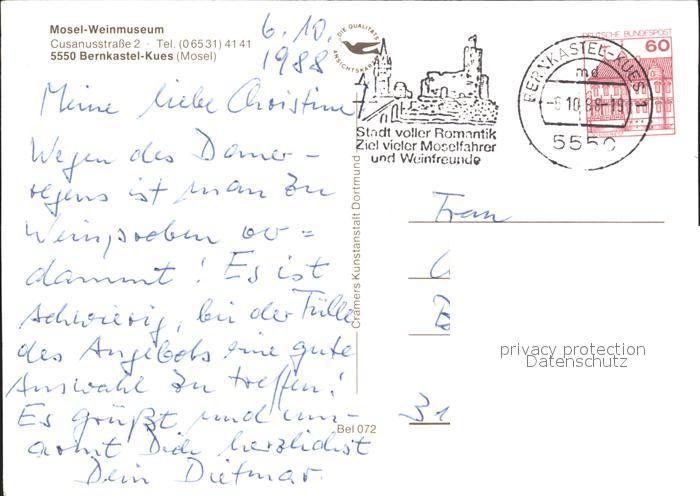 Mosel-Weinmuseum
Cusanusstraße 2 · Tel. (06531) 4141
5550 Bernkastel-Kues (Mosel)
6.10.
1988
Meine liebe Christine
Wegen des Dauer-
regens ist man zu
Weinproben ver=
dammt! Es ist
schwierig, bei der Fülle
des Angebots eine gute
Auswahl zu treffen!
Es grüßt und um-
armt Dich herzlichst
Dein Dietmar.
DIE QUALITÄTS
ANSICHTSKARTE
Cramers Kunstanstalt Dortmund
Bel 072
Stadt voller Romantik
Ziel vieler Moselfahrer
und Weinfreunde
BERNKASTEL-KUES 1
md
-6.10.88-19
5550
DEUTSCHE BUNDESPOST
60
Frau
31
privacy protection
Datenschutz